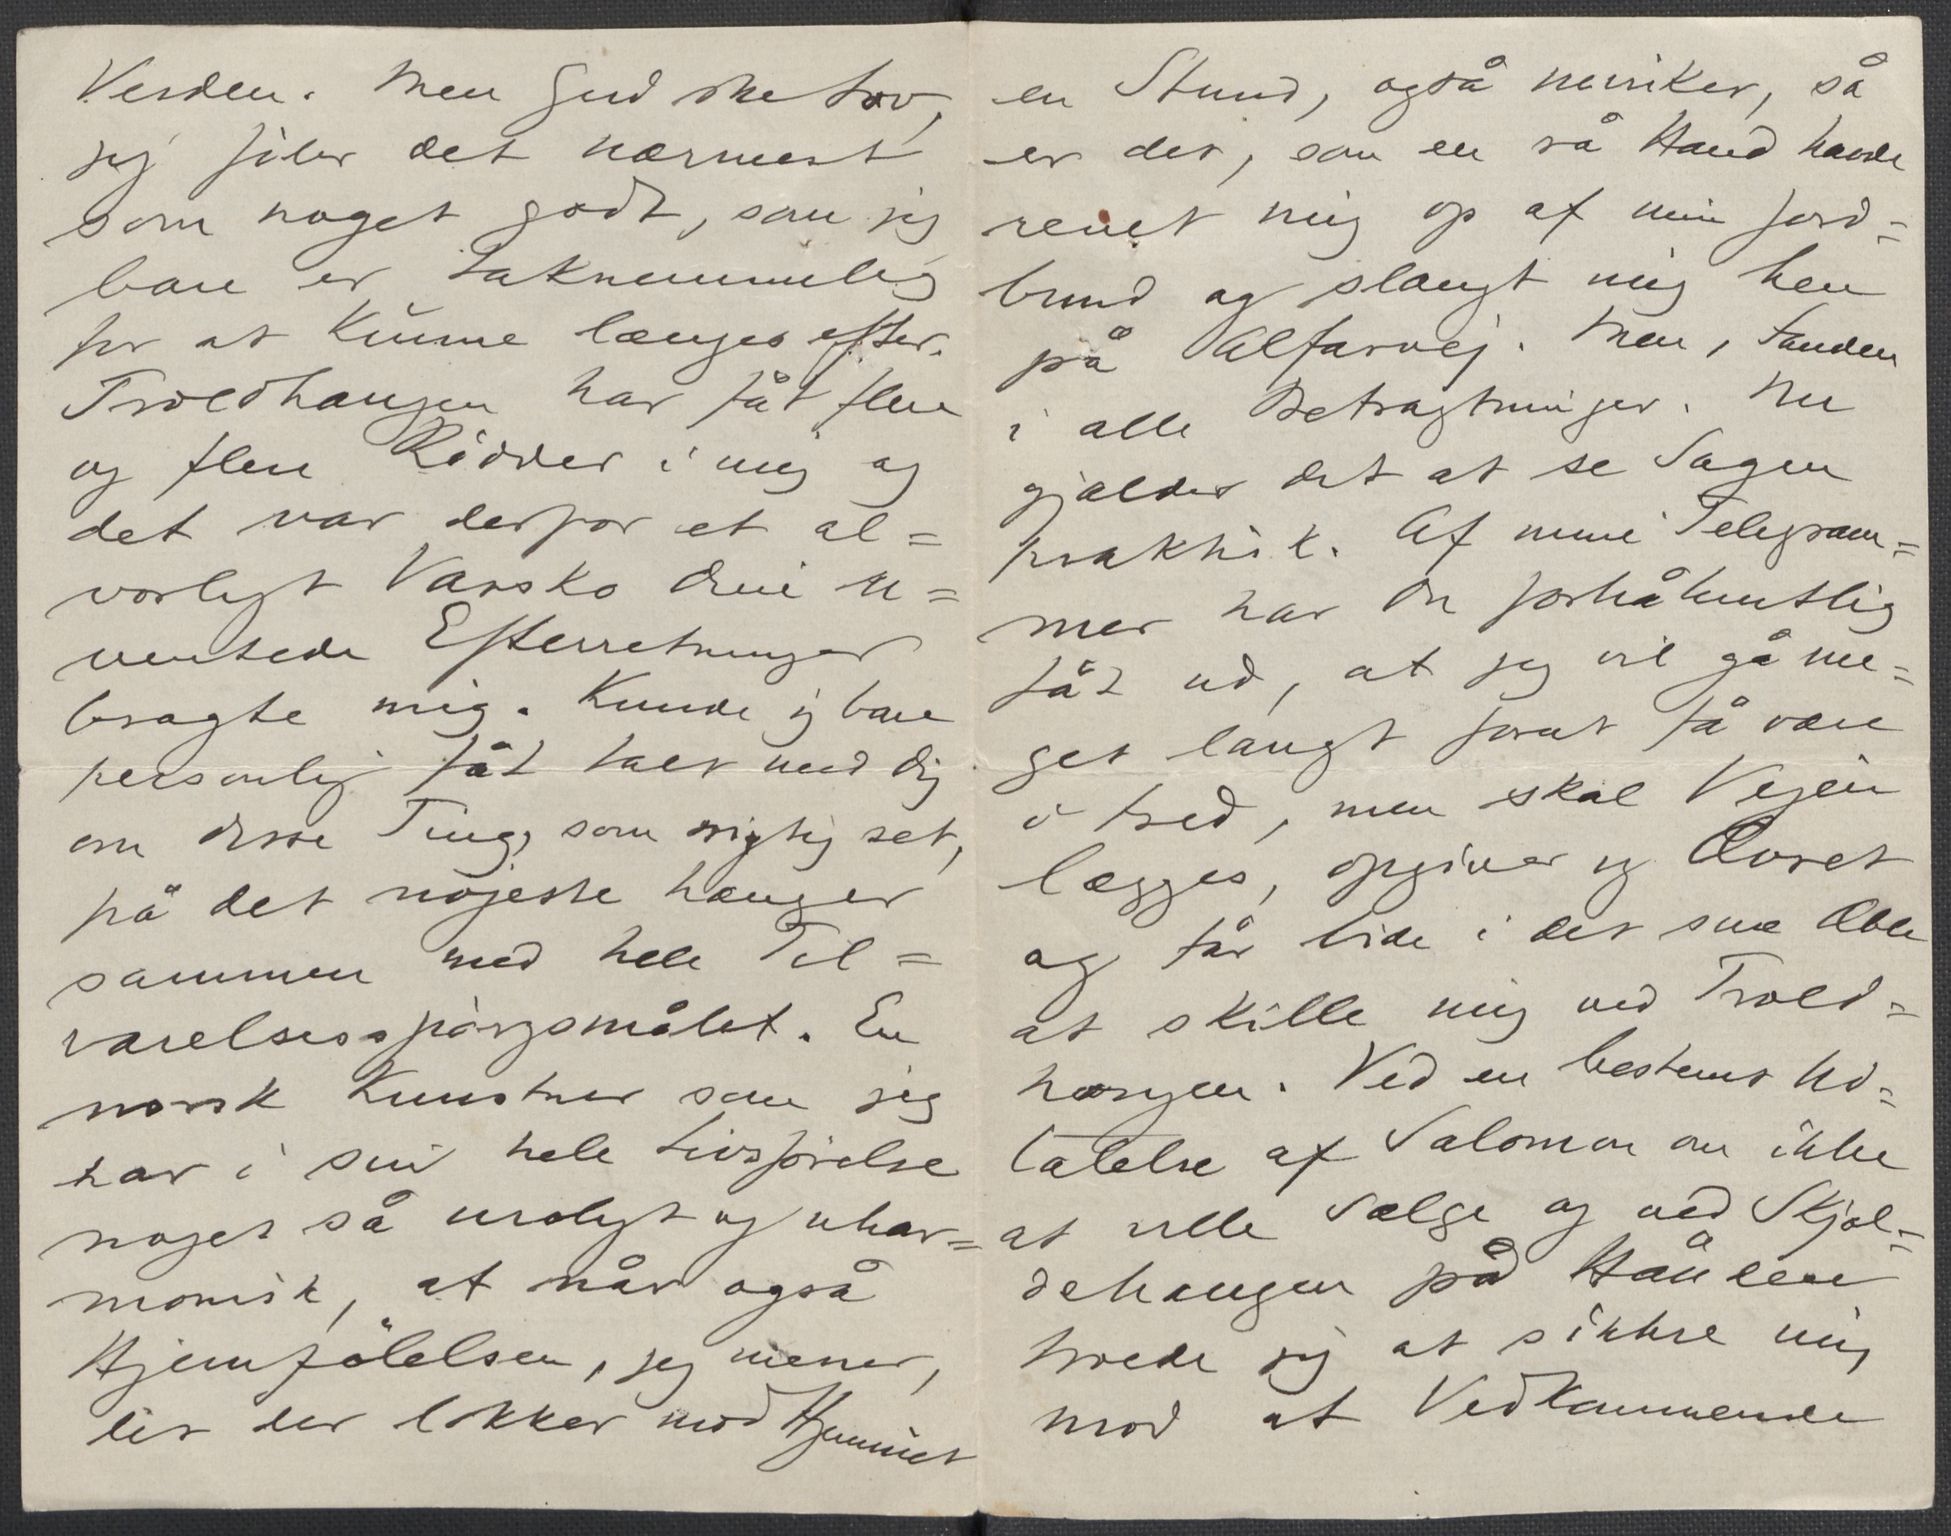 Verden. Men Gud ske Lov,
jeg föler det nærmest
som noget godt, som jeg
bare er taknemmelig
for at kunne længes efter.
Troldhaugen har fåt flere
og flere Rödder i mig og
det var derfor et al=
vorligt Varsko dine u=
ventede Efterretninger
bragte mig. Kunde jeg bare
personlig fåt talt med dig
om disse Ting, som rigtig set,
på det nöjeste hænger
sammen med hele Til=
værelsesspörgsmålet. En
norsk Kunstner som jeg
har i sin hele Livsförelse
noget så uroligt og uhar=
monisk, at når også
Hjemfölelsen, jeg mener,
det der lokker mod Hjemmet
en Stund, også svikter, så
er det, som en rå Hånd havde
revet mig op af min Jord=
bund og slængt mig hen
på Alfarvej. Men, Fanden
i alle Betragtninger. Nu
gjælder det at se Sagen
praktisk. Af mine Telegram=
mer har du forhåbentlig
fåt ud, at jeg vil gå me=
get langt forat få være
i Fred, men skal Vejen
lægges, opgiver jeg Ævret
og får bide i det sure Æble
at skille mig ved Trold=
haugen. Ved en bestemt Ud=
talelse af Salomon om ikke
at ville sælge og ved Skjöl=
dehaugen på Hånden
troede jeg at sikkre mig
mod at Vedkommende